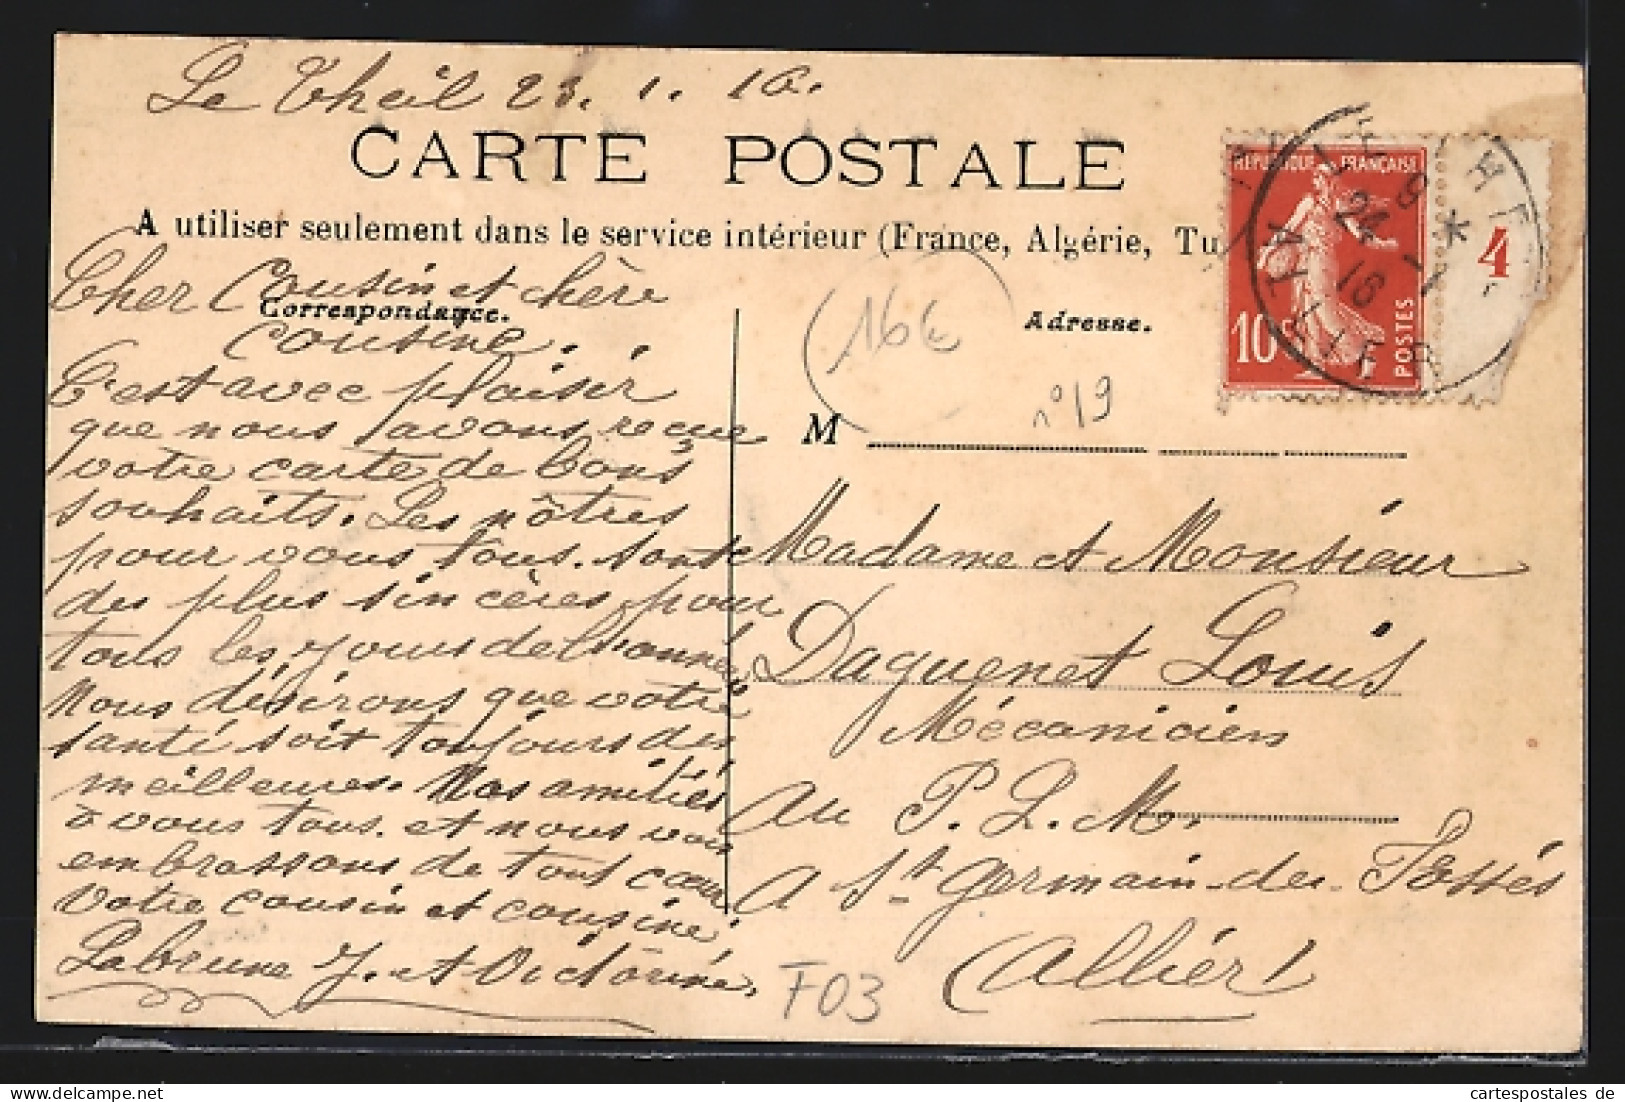 Le Theil 23. 1. 16.
CARTE POSTALE
A utiliser seulement dans le service intérieur (France, Algérie, Tu
Correspondance.
Adresse.
Cher Cousin et chère
cousine.
C'est avec plaisir
que nous avons reçue
votre carte de bons
souhaits. Les nôtres
pour vous tous. sont
des plus sincères pour
tous les jours de l'année
Nous désirons que votre
santé soit toujours des
meilleures. Nos amitiés
à vous tous. et nous vous
embrassons de tout cœur
Votre cousin et cousine.
Labrune J. et Victorine.
16€
n°19
M
Madame et Monsieur
Daguenet Louis
Mécanicien
au P. L. M.
A St Germain-des-Fossés
(Allier)
F03
REPUBLIQUE FRANÇAISE
10c
POSTES
4
LE THEIL
8 *
24 -1
16
ALLIER
delcampe.net
cartespostales de